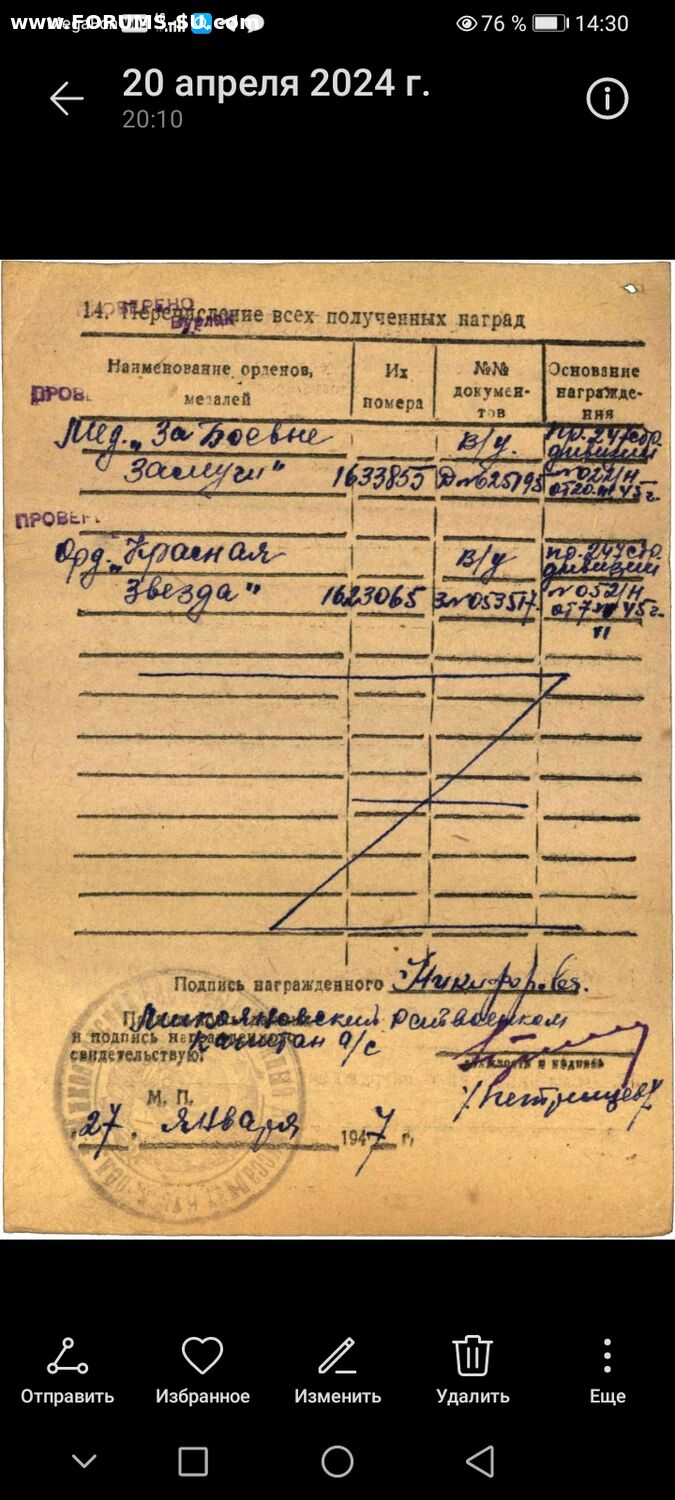 www.FORUMS-SU.com
76 % 14:30
20 апреля 2024 г.
20:10
ПРОВЕРЕНО
Бурлак
14. Перечисление всех полученных наград
Наименование орденов, медалей
Их номера
№№ документов
Основание награждения
ПРОВЕ
Мед. „За Боевые
В/у.
пр. 247 стр.
дивизии
Заслуги"
1633855
Д №625195
№022/н
ПРОВЕР
Орд. „Красная
В/у
пр. 247 стр.
дивизии
Звезда"
1623065
З №053517.
№052/н
Подпись награжденного Никифоров.
Микояновский Райвоенком
и подпись награжденного
Капитан а/с
свидетельствую:
должность и подпись
/Петрищев/
М. П.
„27„ января 1947 г.
Отправить
Избранное
Изменить
Удалить
Еще